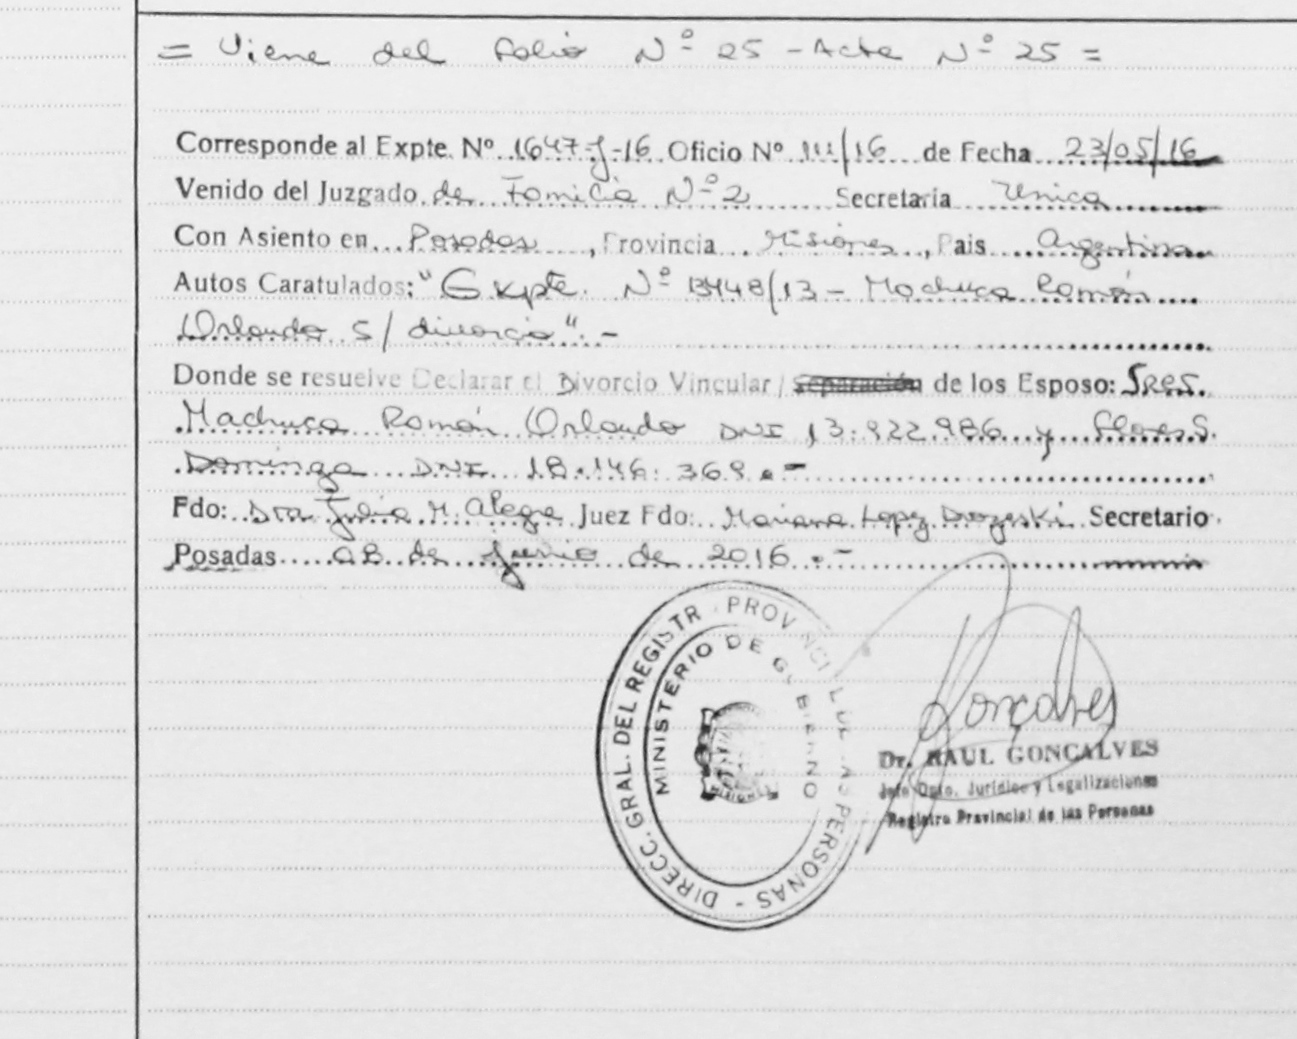 = Viene del folio Nº 25 - Acta Nº 25 =
Corresponde al Expte. Nº 1647-J-16 Oficio Nº 111/16 de Fecha 23/05/16
Venido del Juzgado de Familia Nº 2 Secretaria Unica
Con Asiento en Posadas, Provincia Misiones, Pais Argentina
Autos Caratulados: "Expte. Nº 13448/13 - Machuca Román
Orlando S/ divorcio".-
Donde se resuelve Declarar el Divorcio Vincular / Separación de los Esposo: Sres.
Machuca Román Orlando DNI 13.922.986 y Flores S.
Dominga DNI 18.146.369.-
Fdo: Dra. Julia M. Alegre Juez Fdo: Mariana Lopez Secretario
Posadas 08 de Junio de 2016.-
DIRECC. GRAL. DEL REGISTR PROVINCI L DE LAS PERSONAS -
MINISTERIO DE GOBIERNO
MISIONES
Gonçalves
Dr. RAUL GONÇALVES
Jefe Dpto. Jurídico y Legalizaciones
Registro Provincial de las Personas